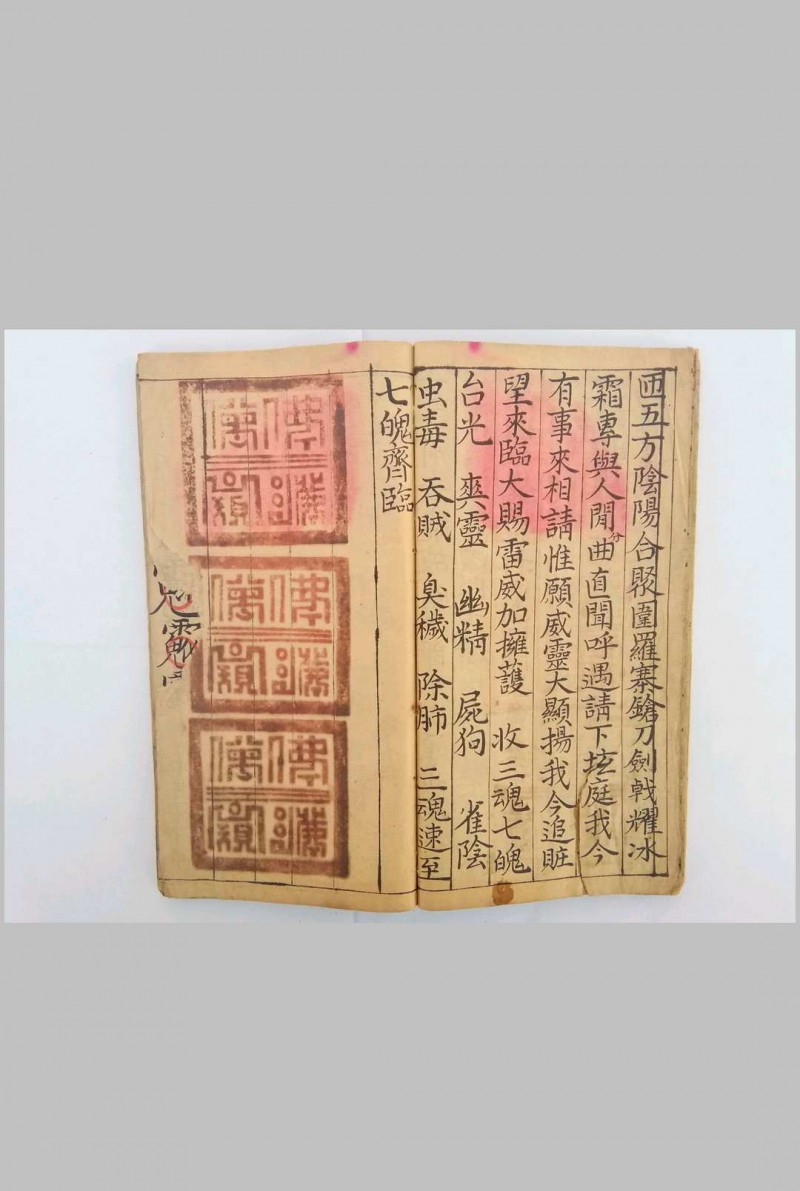 匝五方陰陽合聚圍羅寨鎗刀劍戟耀冰
霜專與人間分曲直聞呼遇請下壇庭我今
有事來相請惟願威靈大顯揚我今追賍
望來臨大賜雷威加擁護 收三魂七魄
台光 爽靈 幽精 屍狗 雀陰
虫毒 吞賊 臭穢 除肺 三魂速至
七魄齊臨